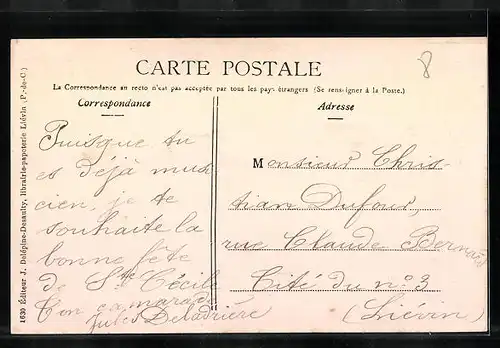 CARTE POSTALE
8
La Correspondance au recto n'est pas acceptée par tous les pays étrangers (Se renseigner à la Poste.)
Correspondance
Puisque tu
es déjà musi
cien, je te
souhaite la
bonne fête
de Ste Cécile
Ton camarade
Jules Deladrière
Adresse
Monsieur Chris
tian Dufour,
rue Claude Bernard
Cité du n° 3
(Liévin)
1630 Éditeur J. Delépine-Desaulty, librairie-papeterie Liévin (P.-de-C.)